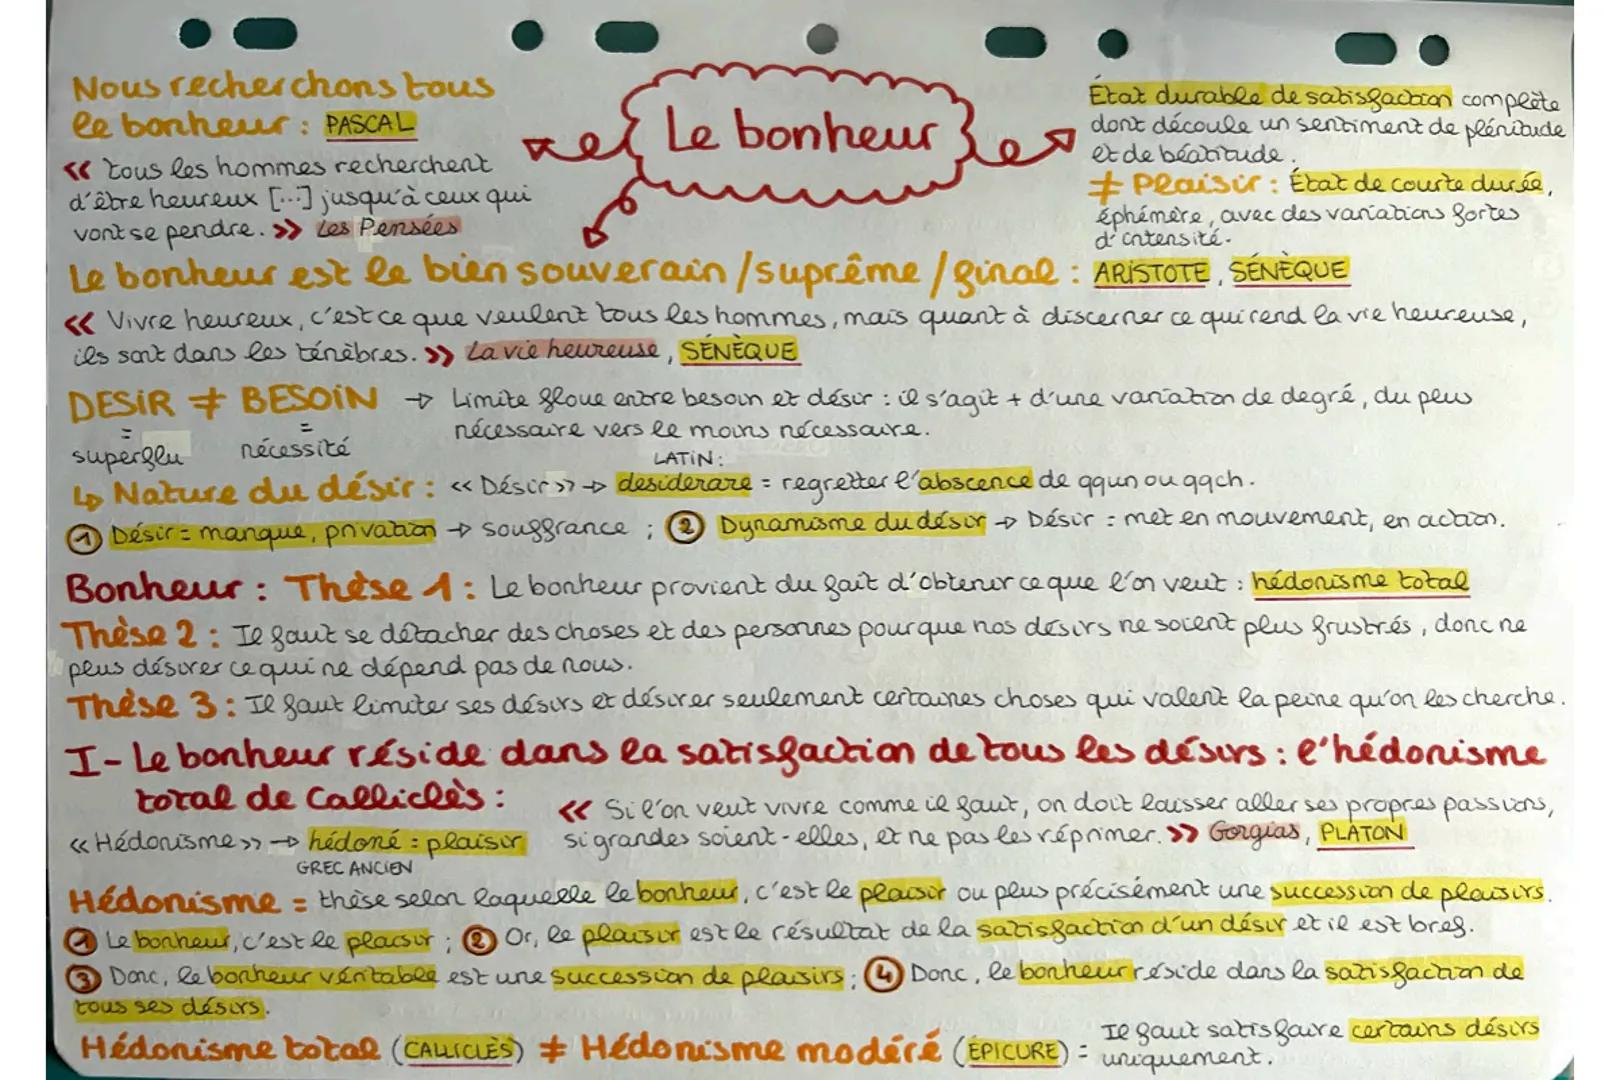 Le bonheur
Nous recherchons tous
le bonheur : PASCAL
« tous les hommes recherchent
d'être heureux [...] jusqu'à ceux qui
vont se pendre. » Les Pensées
État durable de satisfaction complète
dont découle un sentiment de plénitude
et de béatitude.
≠ Plaisir : État de courte durée,
éphémère, avec des variations fortes
d'intensité.
Le bonheur est le bien souverain / suprême / final : ARISTOTE, SÉNÈQUE
« Vivre heureux, c'est ce que veulent tous les hommes, mais quant à discerner ce qui rend la vie heureuse,
ils sont dans les ténèbres. » La vie heureuse, SÉNÈQUE
DESIR ≠ BESOIN → Limite floue entre besoin et désir : il s'agit + d'une variation de degré, du plus
= = nécessaire vers le moins nécessaire.
superflu nécessité
LATIN :
↳ Nature du désir : « Désir » → desiderare = regretter l'abscence de qqun ou qqch.
① Désir = manque, privation → souffrance ; ② Dynamisme du désir → Désir : met en mouvement, en action.
Bonheur : Thèse 1 : Le bonheur provient du fait d'obtenir ce que l'on veut : hédonisme total
Thèse 2 : Il faut se détacher des choses et des personnes pour que nos désirs ne soient plus frustrés, donc ne
plus désirer ce qui ne dépend pas de nous.
Thèse 3 : Il faut limiter ses désirs et désirer seulement certaines choses qui valent la peine qu'on les cherche.
I- Le bonheur réside dans la satisfaction de tous les désirs : l'hédonisme
total de Calliclès :
« Si l'on veut vivre comme il faut, on doit laisser aller ses propres passions,
si grandes soient-elles, et ne pas les réprimer. » Gorgias, PLATON
« Hédonisme » → hédoné : plaisir
GREC ANCIEN
Hédonisme = thèse selon laquelle le bonheur, c'est le plaisir ou plus précisément une succession de plaisirs.
① Le bonheur, c'est le plaisir ; ② Or, le plaisir est le résultat de la satisfaction d'un désir et il est bref.
③ Donc, le bonheur véritable est une succession de plaisirs ; ④ Donc, le bonheur réside dans la satisfaction de
tous ses désirs.
Hédonisme total (CALLICLÈS) ≠ Hédonisme modéré (ÉPICURE) = Il faut satisfaire certains désirs
uniquement.